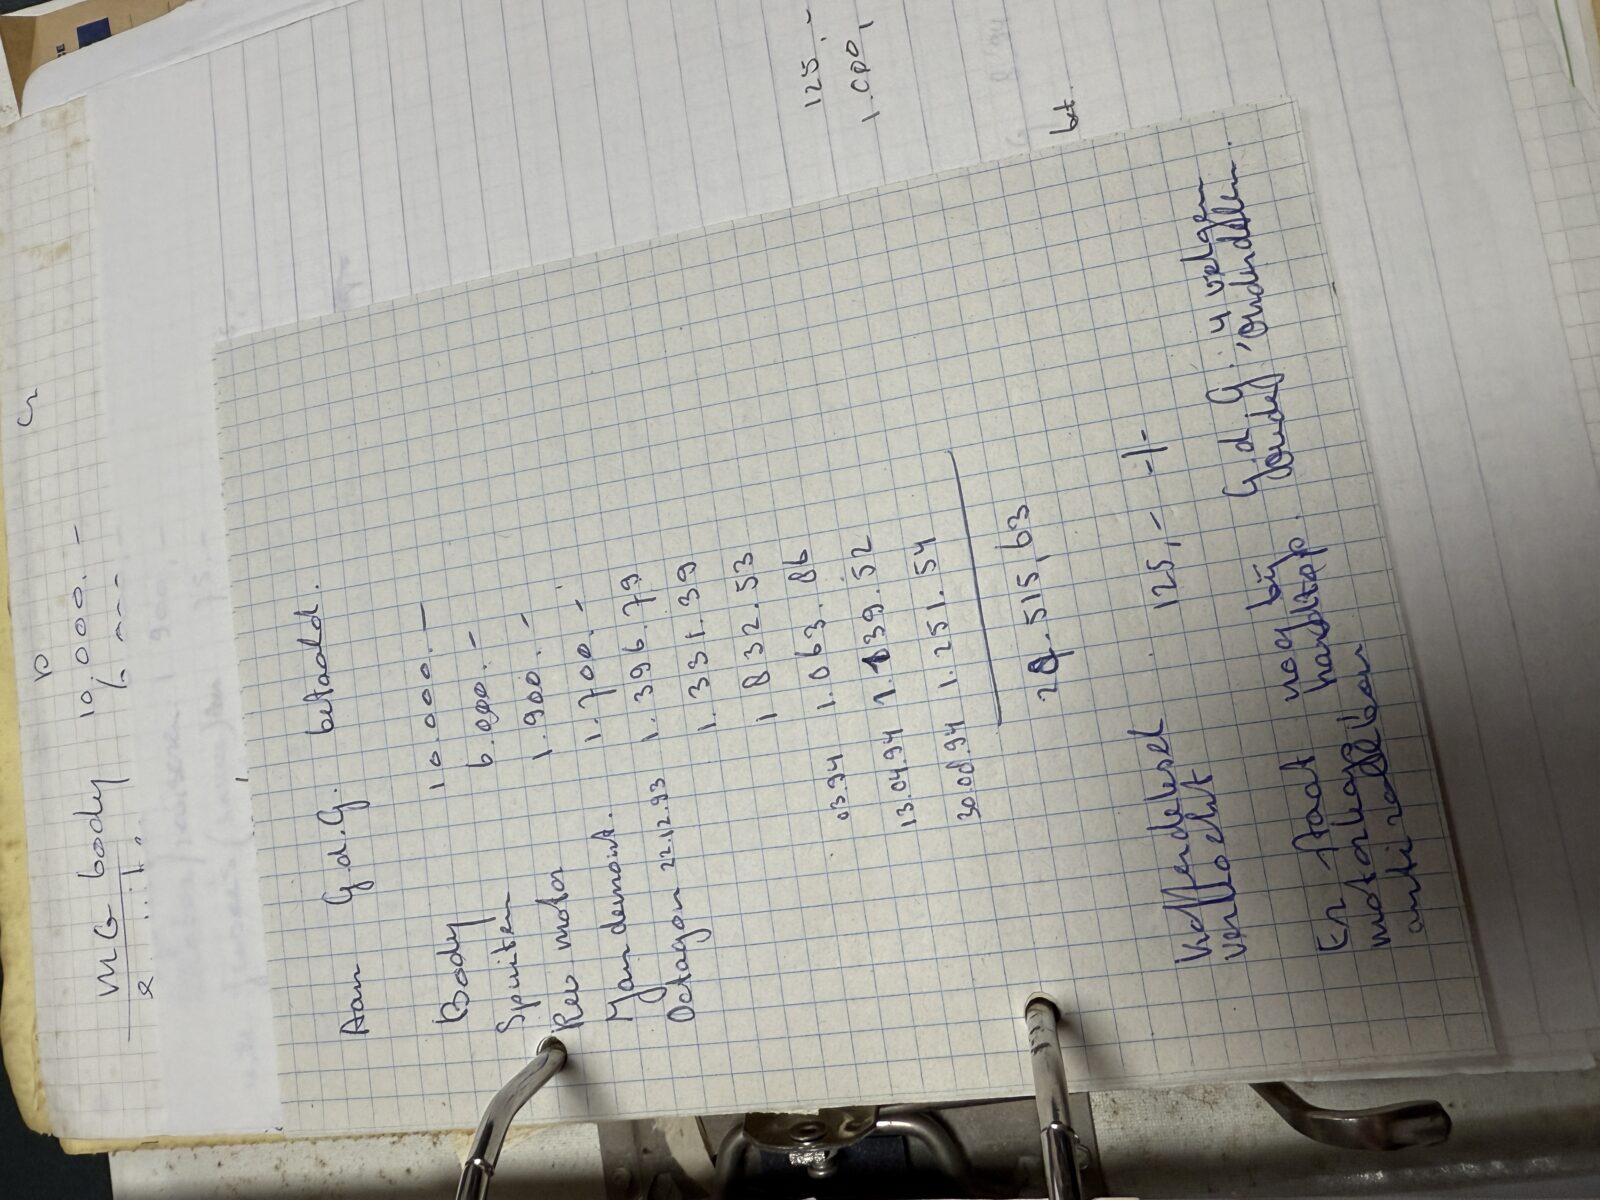 MG body 10.000.-
125.-
1.000,
bet.
Aan G.d.G. betaald.
Body 10.000.-
Spuiten 6.000.-
Rev motor 1.900.-
1.700.-
Man demont. 1.396.79
Octagon 22.12.93 1.331.39
1832.53
03.94 1.063.86
13.04.94 1.139.52
30.08.94 1.251.54
28.515,63
125,- -/-
verkocht
G.d.G. 4 velgen
Er staat nog bij
motorkap handstop.
anti roll bar